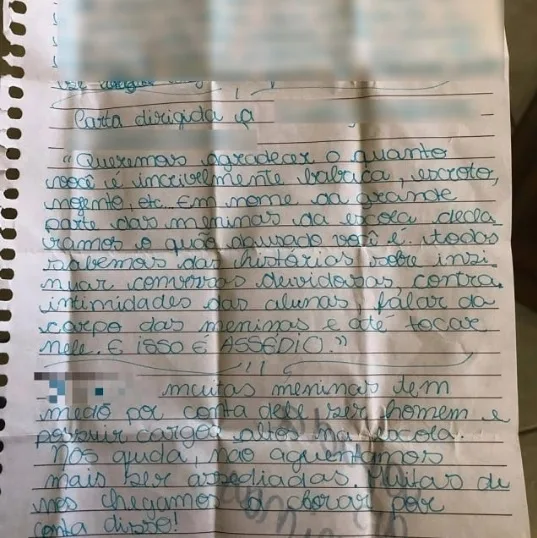 Carta dirigida a
"Queremos agradecer o quanto
você é incrivelmente babaca, escroto,
nojento, etc. Em nome da grande
parte das meninas da escola decla
ramos o quão abusado você é. todas
sabemos das histórias sobre insi
nuar conversas duvidosas, contra
intimidades das alunas, falar do
corpo das meninas e até tocar
nele. E ISSO É ASSÉDIO."
muitas meninas tem
medo por conta dele ser homem e
possuir cargos altos na escola.
Nos ajuda, não aguentamos
mais ser assediadas. Muitas de
nós chegamos a chorar por
conta disso!